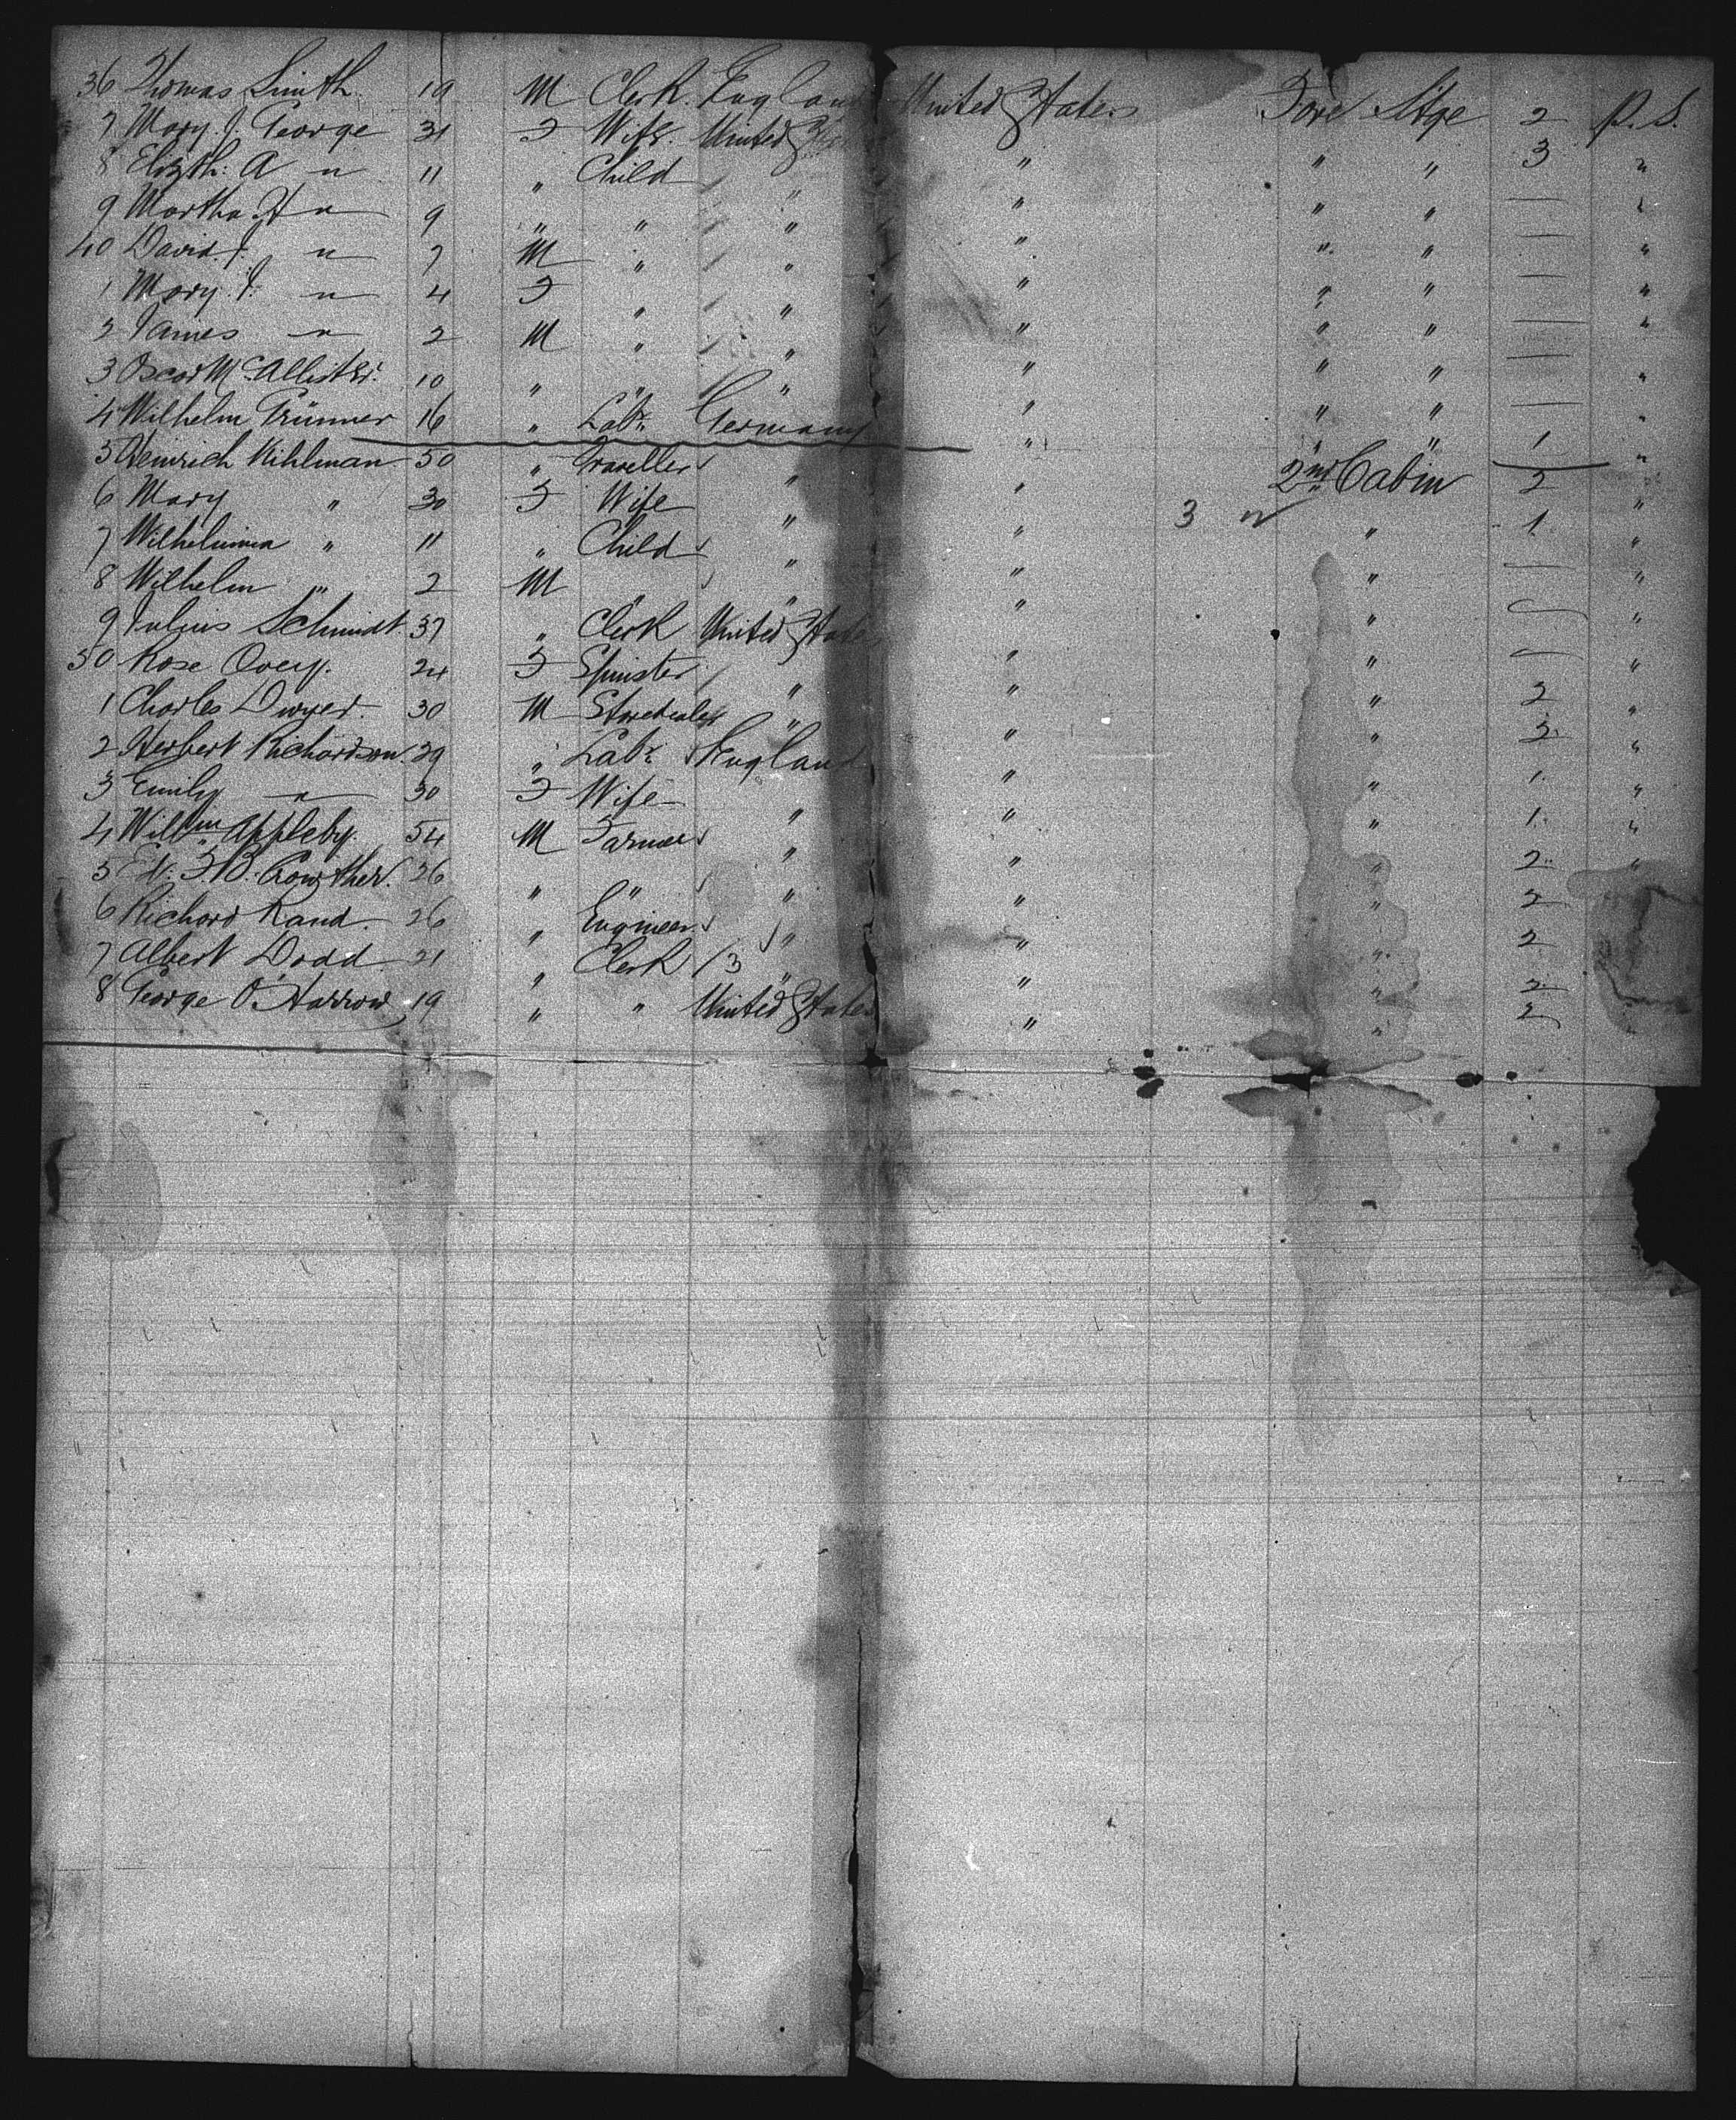 36 Thomas Smith. 19 M Clerk. England United States Fore Stge 2 P.S.
7 Mary. J. George 31 F Wife. United States " " " 3 "
8 Elizth: A " 11 " Child " " " " — "
9 Martha H " 9 " " " " " " — "
40 David. J. " 7 M " " " " " — "
1 Mary. J. " 4 F " " " " " — "
2 James " 2 M " " " " " — "
3 Oscar McAllister. 10 " " " " " " — "
4 Wilhelm Grünner 16 " Labr. Germany " " " 1 "
5 Heinrich Kihlman 50 " Traveller " " 2nd Cabin 2 "
6 Mary " 30 F Wife " " 3 " 1 "
7 Wilhelmina " 11 " Child " " " — "
8 Wilhelm " 2 M " " " " — "
9 Julius Schmidt. 37 " Clerk United States " " — "
50 Rose Overy. 24 F Spinster " " " 2 "
1 Charles Dwyer. 30 M Storedealer " " " 2 "
2 Herbert Richardson. 29 " Labr. England " " 1. "
3 Emily " 30 F Wife " " " 1. "
4 Willm Appleby. 54 M Farmer " " " 2 "
5 F.B. Crowther. 26 " " " " " 2 "
6 Richard Rand. 26 " Engineer " " " 2 "
7 Albert Dodd 21 " Clerk / 3 " " " 2 "
8 George O'Harrow 19 " " United States " " 2 "